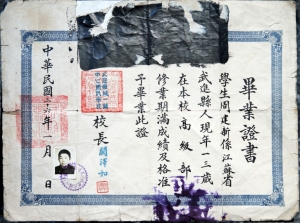 畢業證書
學生周建新係江蘇省
武進縣人現年一三歲
在本校高級部
修業期滿成績及格准
予畢業此證
校長
中華民國三六年一月 日